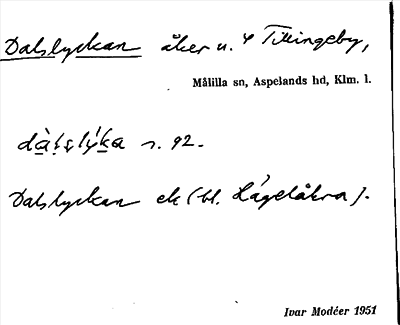 Dalslyckan åker u. 4 Tillingeby,
Målilla sn, Aspelands hd, Klm. l.
dàl̥slýka n. 92.
Dalslyckan ek (bl. Hagelåkra).
Ivar Modéer 1951